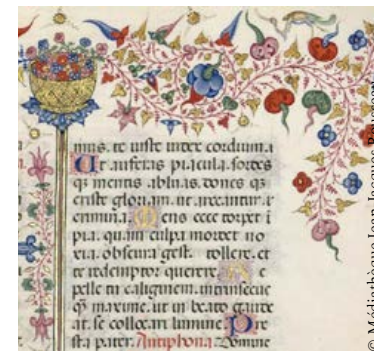 mus. te iuste iudex cordium.
Ut auferas piacula. sordes
q3 mentis abluas. dones q3
criste gloriam. ut
crimina. Mens ecce torpet
pia. quam culpa mordet no
xia. obscura gest. tollere. et
te redemptor querere.
pelle tu caliginem. intrinsecus
q3 maxime. ut in beato gaude
at. se collocari lumine. Pre
sta pater. Antiphona. Domine
© Médiathèque Jean-Jacques Rousseau